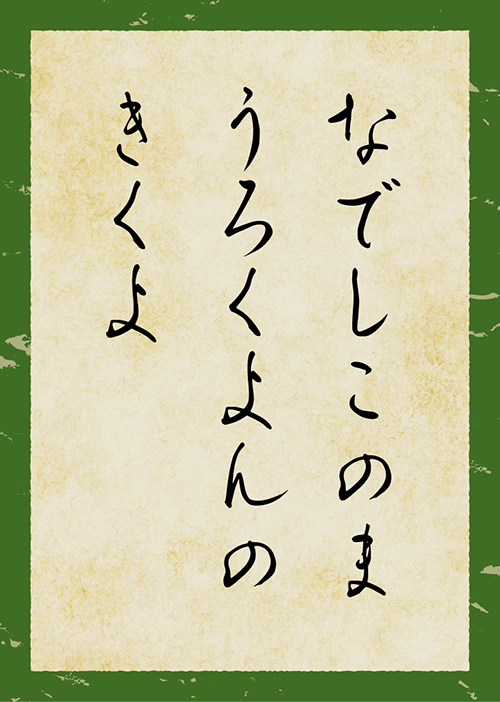 なでしこのま
うろくよんの
きくよ